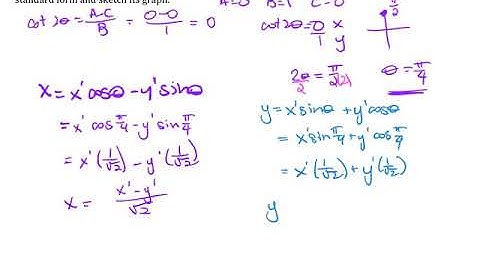 standard form and sketch its graph.
A=0 B=1 C=0
cot 2θ = A-C/B = 0-0/1 = 0
cot 2θ = 0/1 x/y
π/2
2θ/2 = π/2(2) θ = π/4
x = x'cosθ - y'sinθ
= x'cos π/4 - y'sin π/4
= x'(1/√2) - y'(1/√2)
x = x'-y'/√2
y = x'sinθ + y'cosθ
= x'sin π/4 + y'cos π/4
= x'(1/√2) + y'(1/√2)
y